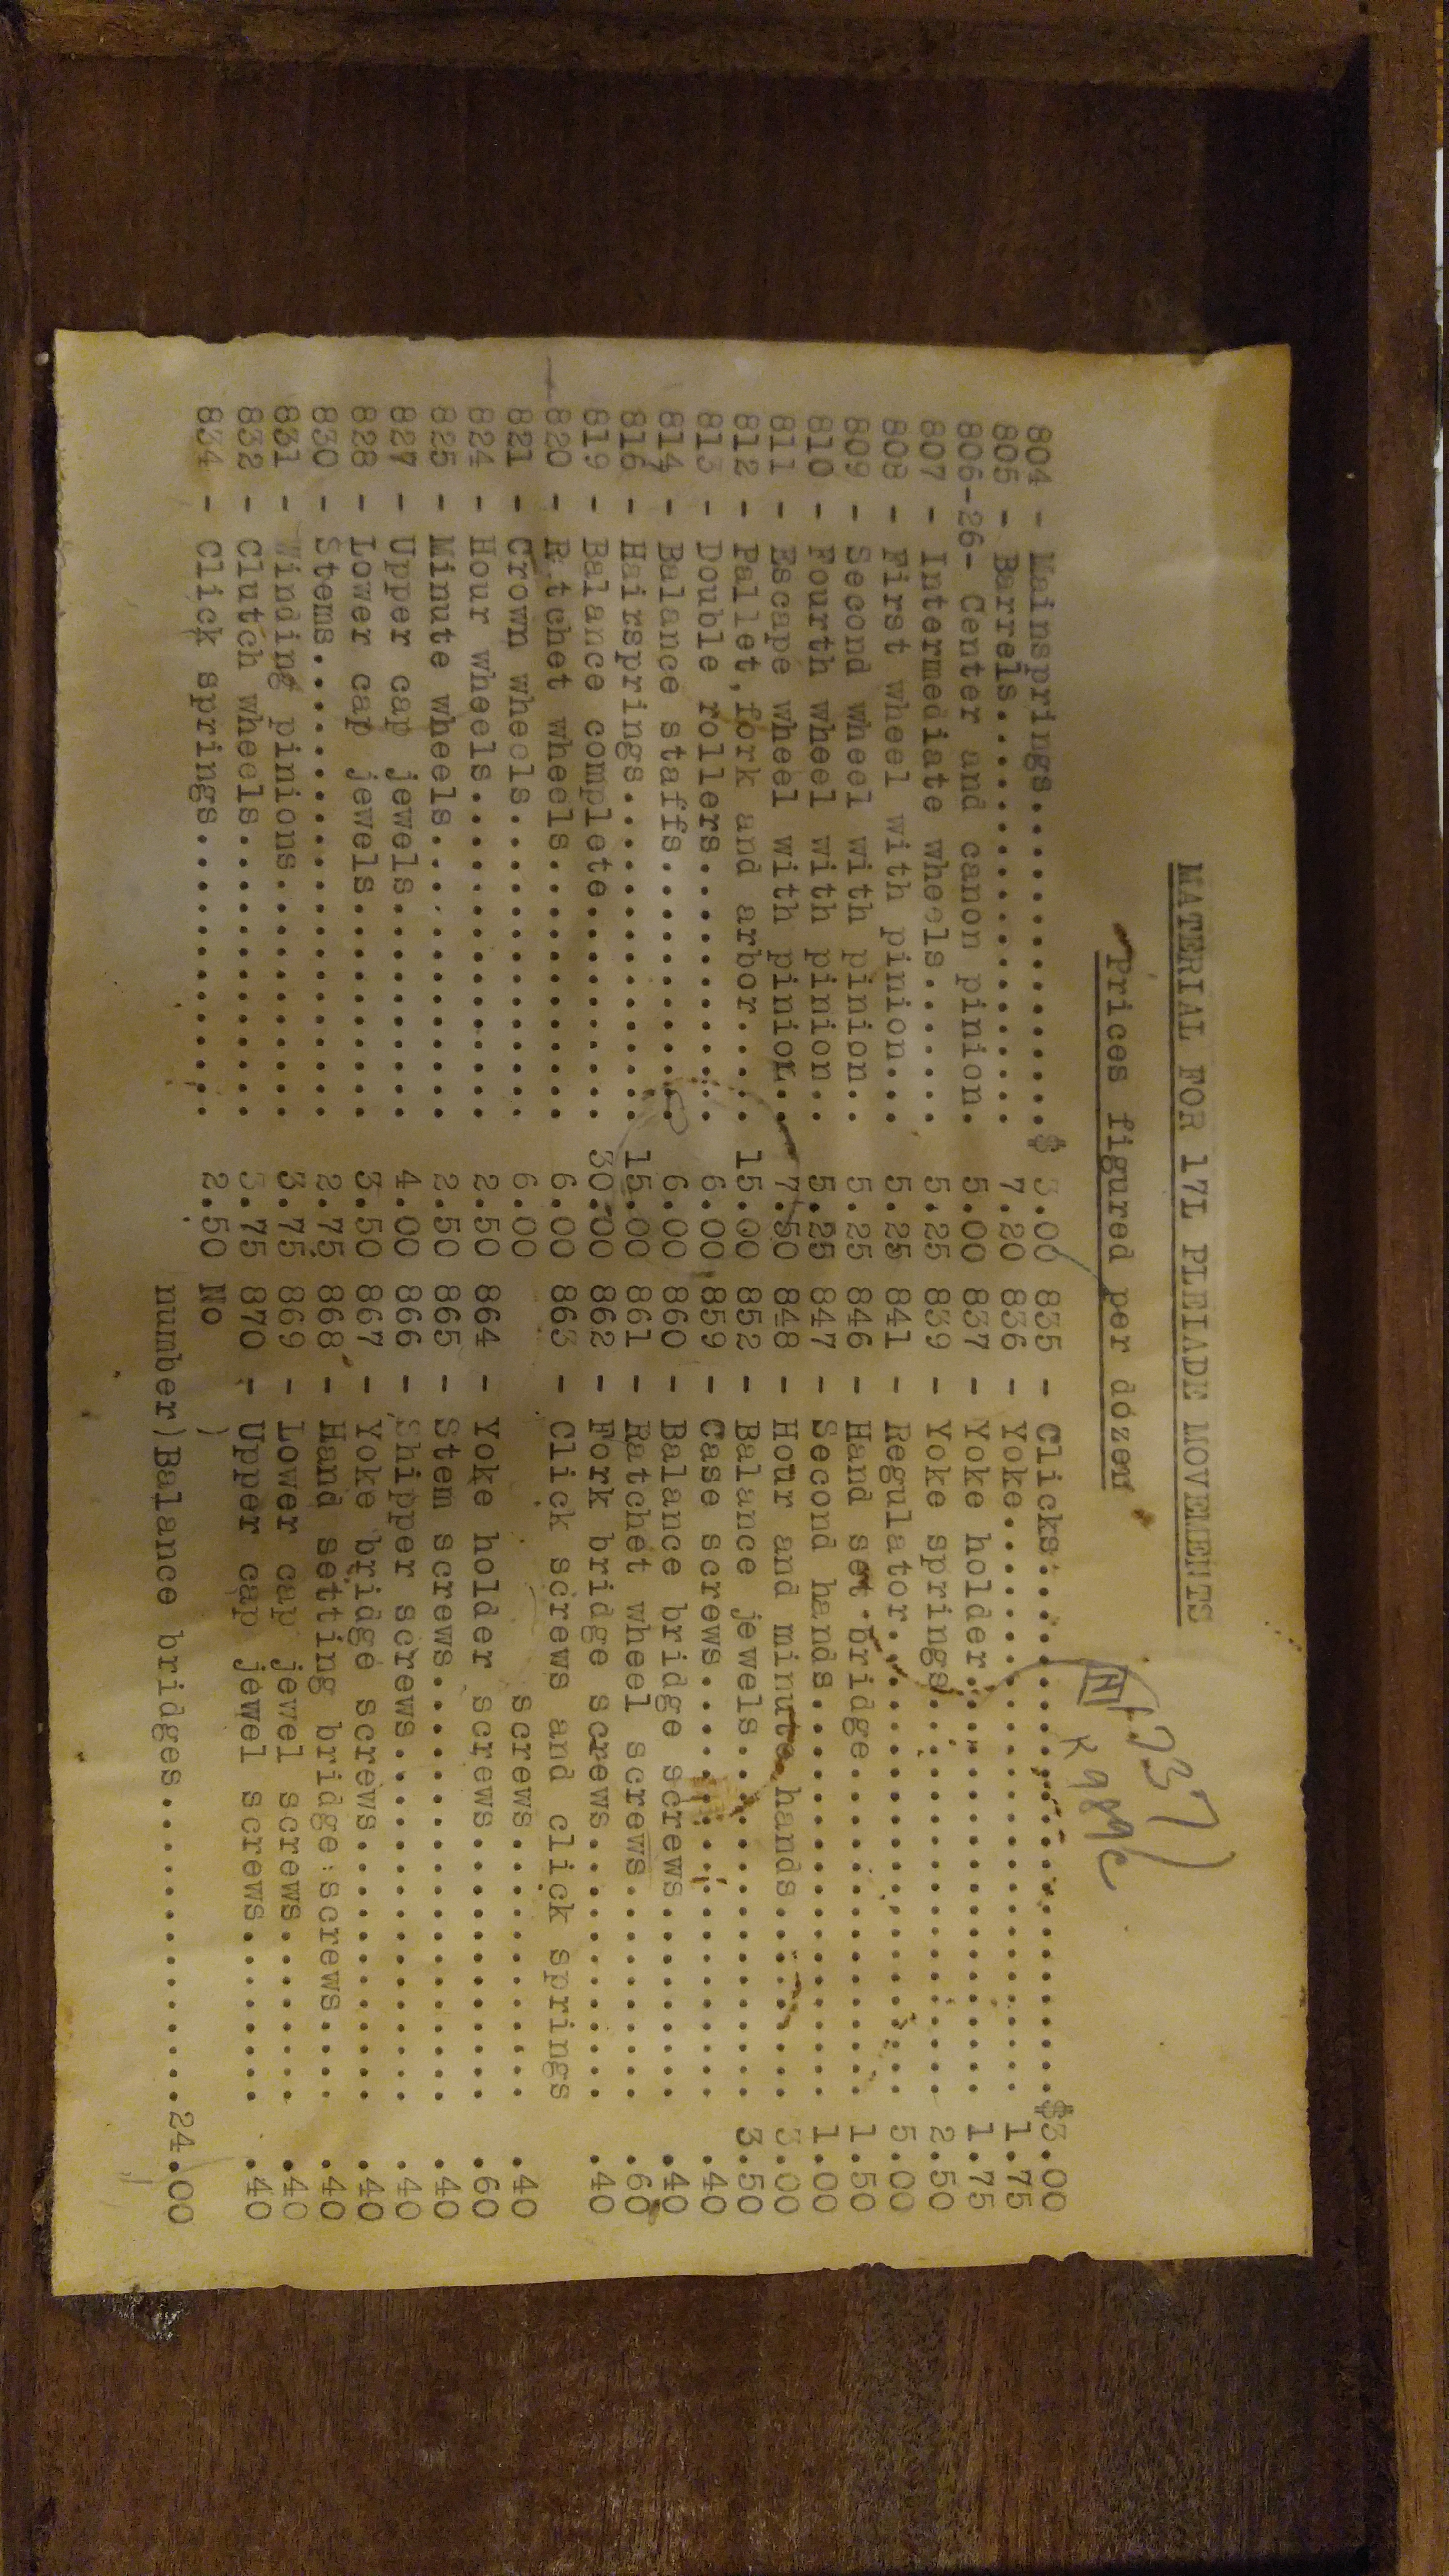 MATERIAL FOR 17L PLEIADE MOVEMENTS
Prices figured per dozen
804 - Mainsprings....................$ 3.00 835 - Clicks..........................$3.00
805 - Barrels........................ 7.20 836 - Yoke............................ 1.75
806-26- Center and canon pinion. 5.00 837 - Yoke holder..................... 1.75
807 - Intermediate wheels....... 5.25 839 - Yoke springs.................... 2.50
808 - First wheel with pinion... 5.25 841 - Regulator....................... 5.00
809 - Second wheel with pinion.. 5.25 846 - Hand set bridge................. 1.50
810 - Fourth wheel with pinion.. 5.25 847 - Second hands.................... 1.00
811 - Escape wheel with pinion.. 7.50 848 - Hour and minute hands........... 3.00
812 - Pallet,fork and arbor..... 15.00 852 - Balance jewels.................. 3.50
813 - Double rollers............. 6.00 859 - Case screws..................... .40
814 - Balance staffs............. 6.00 860 - Balance bridge screws........... .40
816 - Hairsprings................ 15.00 861 - Ratchet wheel screws............ .60
819 - Balance complete........... 30.00 862 - Fork bridge screws.............. .40
820 - Ratchet wheels............. 6.00 863 - Click screws and click springs
821 - Crown wheels............... 6.00 screws............... .40
824 - Hour wheels................ 2.50 864 - Yoke holder screws.............. .60
825 - Minute wheels.............. 2.50 865 - Stem screws..................... .40
827 - Upper cap jewels........... 4.00 866 - Shipper screws.................. .40
828 - Lower cap jewels........... 3.50 867 - Yoke bridge screws.............. .40
830 - Stems...................... 2.75 868 - Hand setting bridge screws...... .40
831 - Winding pinions............ 3.75 869 - Lower cap jewel screws.......... .40
832 - Clutch wheels.............. 3.75 870 - Upper cap jewel screws.......... .40
834 - Click springs.............. 2.50 No )
number)Balance bridges................24.00